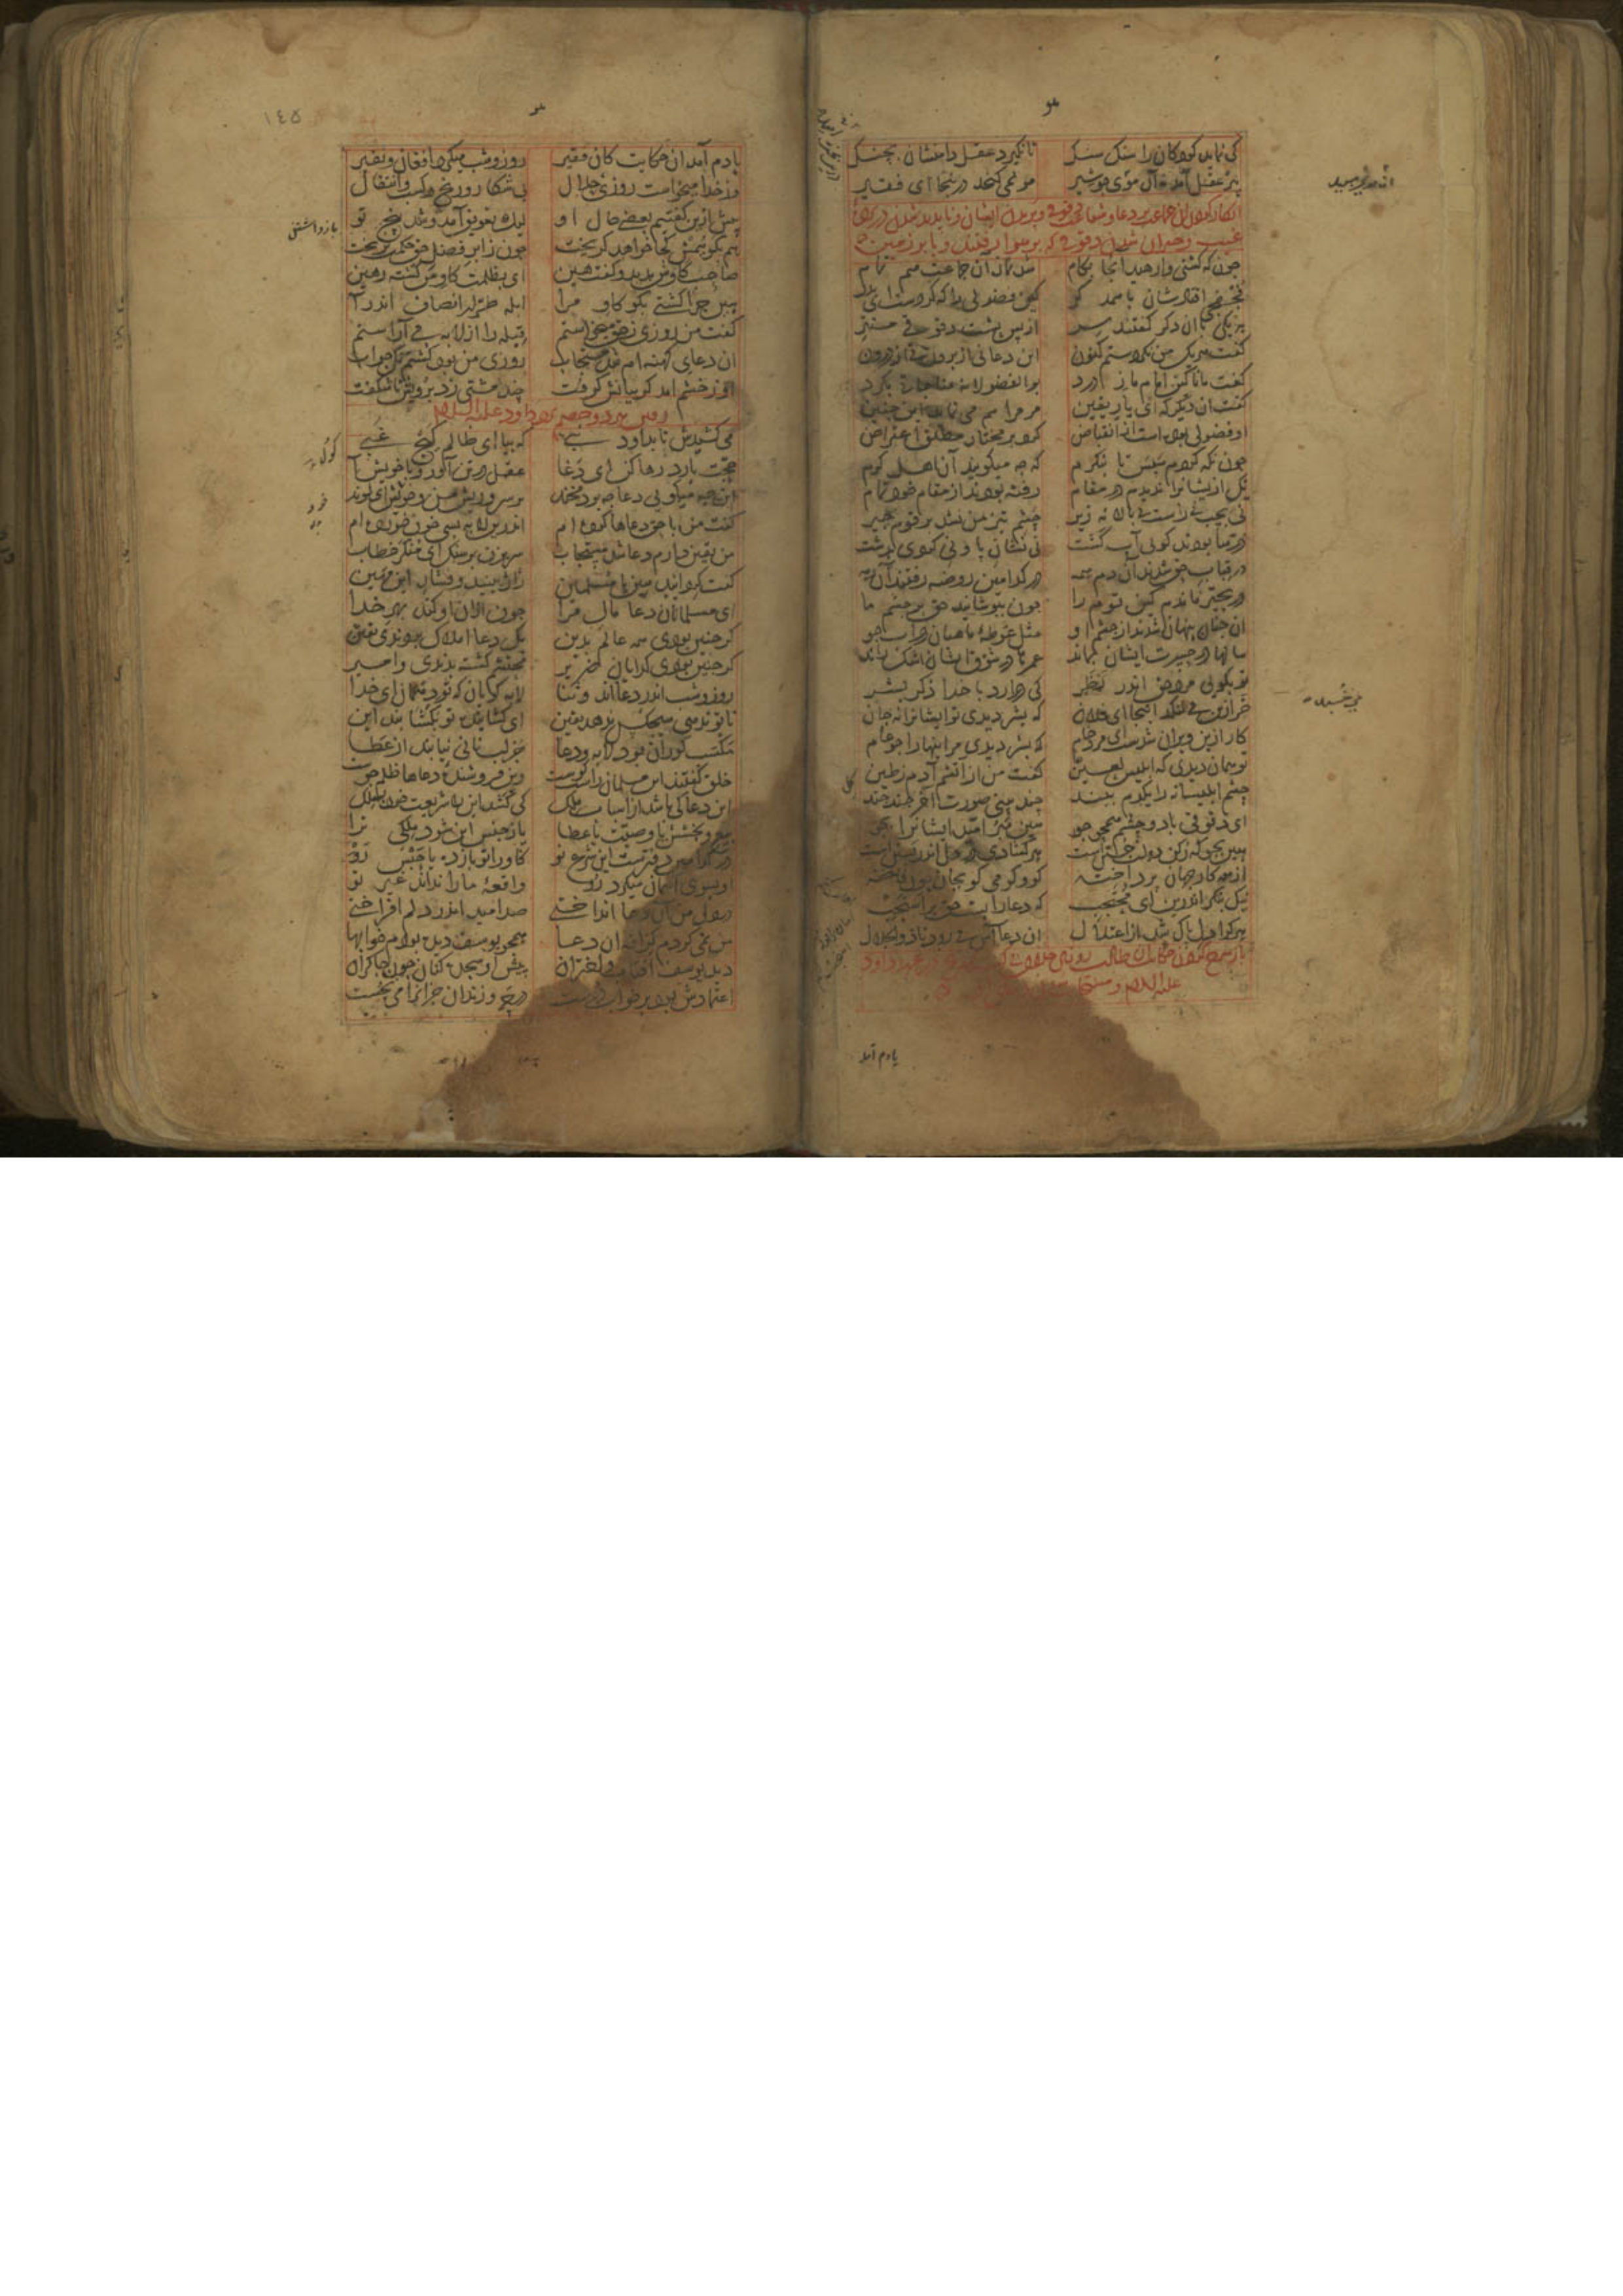 هو
کی نماید کودکان را سنک سنک تا نکیرد عقل دامنشان بچنک
مو نمی کنجد درینجا ای فقیر
انکار کردن ان جماعت بر دعا و شفاعت دقوقی و پریدن ایشان و ناپدید شدن در پرده
غیب و حیران شدن دقوقی که بر هوا رفتند و یا بر زمین
جون که کشتی وارهید انجا بکام شد نماز آن جماعت هم تمام
فجفجی افتادشان با همدکر کین فضولی را که کرد
هر یکی با ان دکر کفتند سر از پس پشت دقوقی مستتر
کفت هر یک من نکردستم کنون این دعا نی از برون نی از درون
کفت مانا کین امام ما ز درد بوالفضولانه مناجات بکرد
کفت ان دیکر که ای یار یقین مر مرا هم می نماید این جنین
او فضولی بوده است از انقباض کرد بر مختار مطلق اعتراض
جون نکه کردم سپس تا بنکرم که جه میکویند آن اهل کرم
یک ازیشانرا ندیدم در مقام رفته بودند از مقام خود تمام
نی بجپ نی راست نی بالا نه زیر جشم تیز من نشد بر قوم جیر
درها بودند کویی آب کشت نی نشان پا و نی کردی بدشت
در قباب حق شدند آن دم همه در کدامین روضه رفتند آن رمه
در تحیر ماندم کین قوم را جون بپوشانید حق بر جشم ما
ان جنان پنهان شدند از جشم او مثل غوطه ماهیان در آب جو
سالها در حسرت ایشان بماند عمرها در شوق ایشان اشک راند
تو بکویی مرد حق اندر نظر کی در آرد با خدا ذکر بشر
خر ازین می لنکد اینجا ای فلان که بشر دیدی تو ایشانرا نه جان
کار ازین ویران شدست ای مرد خام که بشر دیدی مر اینهارا جو عام
تو همان دیدی که ابلیس لعین کفت من از اتشم آدم ز طین
جشم ابلیسانه را یکدم ببند جند بینی صورت آخر جند جند
ای دقوقی با دو جشم همجو جو هین مبر امید ایشانرا بجو
هین بجو که رکن دولت جستن است هر کشادی در دل اندر بستن است
از همه کار جهان پرداخته کو و کو می کو بجان جون فاخته
نیک بنکر اندرین ای محتجب که دعا را بست حق بر استجب
هر کرا دل پاک شد از اعتدال ان دعااش می رود تا ذو الجلال
باز شرح کردن حکایت ان طالب روزی حلال در عهد داود
علیه السلام و مستجاب
یادم آمد
هو
١٤٥
یادم آمد ان حکایت کان فقیر روز و شب میکرد افغان و نفیر
وز خدا میخواست روزی حلال بی شکار و رنج و کسب و انتقال
پیش ازین کفتیم بعضی حال او لیک تعویق آمد و شد پنج تو
هم بکوییمش کجا خواهد کریخت جون ز ابر فضل حق حکمت بریخت
صاحب کاوش بدید و کفت هین ای بظلمت کاو من کشته رهین
هین جرا کشتی بکو کاو مرا ابله طرار انصاف اندرآ
کفت من روزی ز حق میخواستم قبله را از لابه می آراستم
ان دعای کهنه ام شد مستجاب روزی من بود کشتم نک جواب
او ز خشم امد کریبانش کرفت جند مشتی زد برویش ناشکفت
رفتن هر دو خصم نزد داود علیه السلام
می کشیدش تا بداود نبی که بیا ای ظالم کیج غبی
حجت بارد رها کن ای دغا عقل در تن آور و با خویش آ
این جه میکویی دعا جه بود مخند بر سر و ریش من و خویش ای لوند
کفت من با حق دعاها کرده ام اندرین لابه بسی خون خورده ام
من یقین دارم دعا شد مستجاب سر بزن بر سنک ای منکر خطاب
کفت کرد آیید هین یا مسلمین ژاژ ببینید و فشار این مهین
ای مسلمانان دعا مال مرا جون از ان او کند بهر خدا
کر جنین بودی همه عالم بدین یک دعا املاک بردندی بکین
کر جنین بودی کدایان ضریر محتشم کشته بدندی و امیر
روز و شب اندر دعااند و ثنا لابه کویان که تو ده مان ای خدا
تا تو ندهی هیجکس ندهد یقین ای کشاینده تو بکشا بند این
مکسب کوران بود لابه و دعا جز لب نانی نیابند از عطا
خلق کفتند این مسلمان راست کوست وین فروشنده دعاها ظلم جوست
این دعا کی باشد از اسباب ملک کی کشد این را شریعت خود بسلک
بیع و بخشش یا وصیت یا عطا یا ز جنس این شود ملکی ترا
در کدامین دفترست این شرع نو کاو را تو باز ده یا حبس رو
او بسوی آسمان میکرد رو واقعه ما را نداند غیر تو
در دل من آن دعا انداختی صد امید اندر دلم افراختی
من نمی کردم کزافه ان دعا همجو یوسف دیده بودم خوابها
دید یوسف آفتاب و اختران پیش او سجده کنان جون جاکران
اعتمادش بود بر خواب درست در جه و زندان جز انرا می نجست